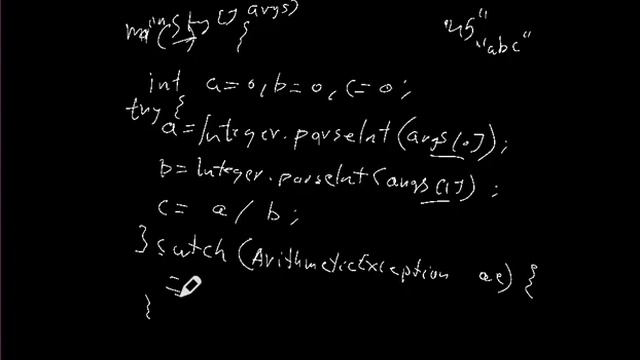 main(String[] args)
{
"45"
"abc"
int a=0,b=0,c=0;
try {
a=Integer.parseInt(args[0]);
b=Integer.parseInt(args[1]);
c= a / b;
} catch (ArithmeticException ae) {
}